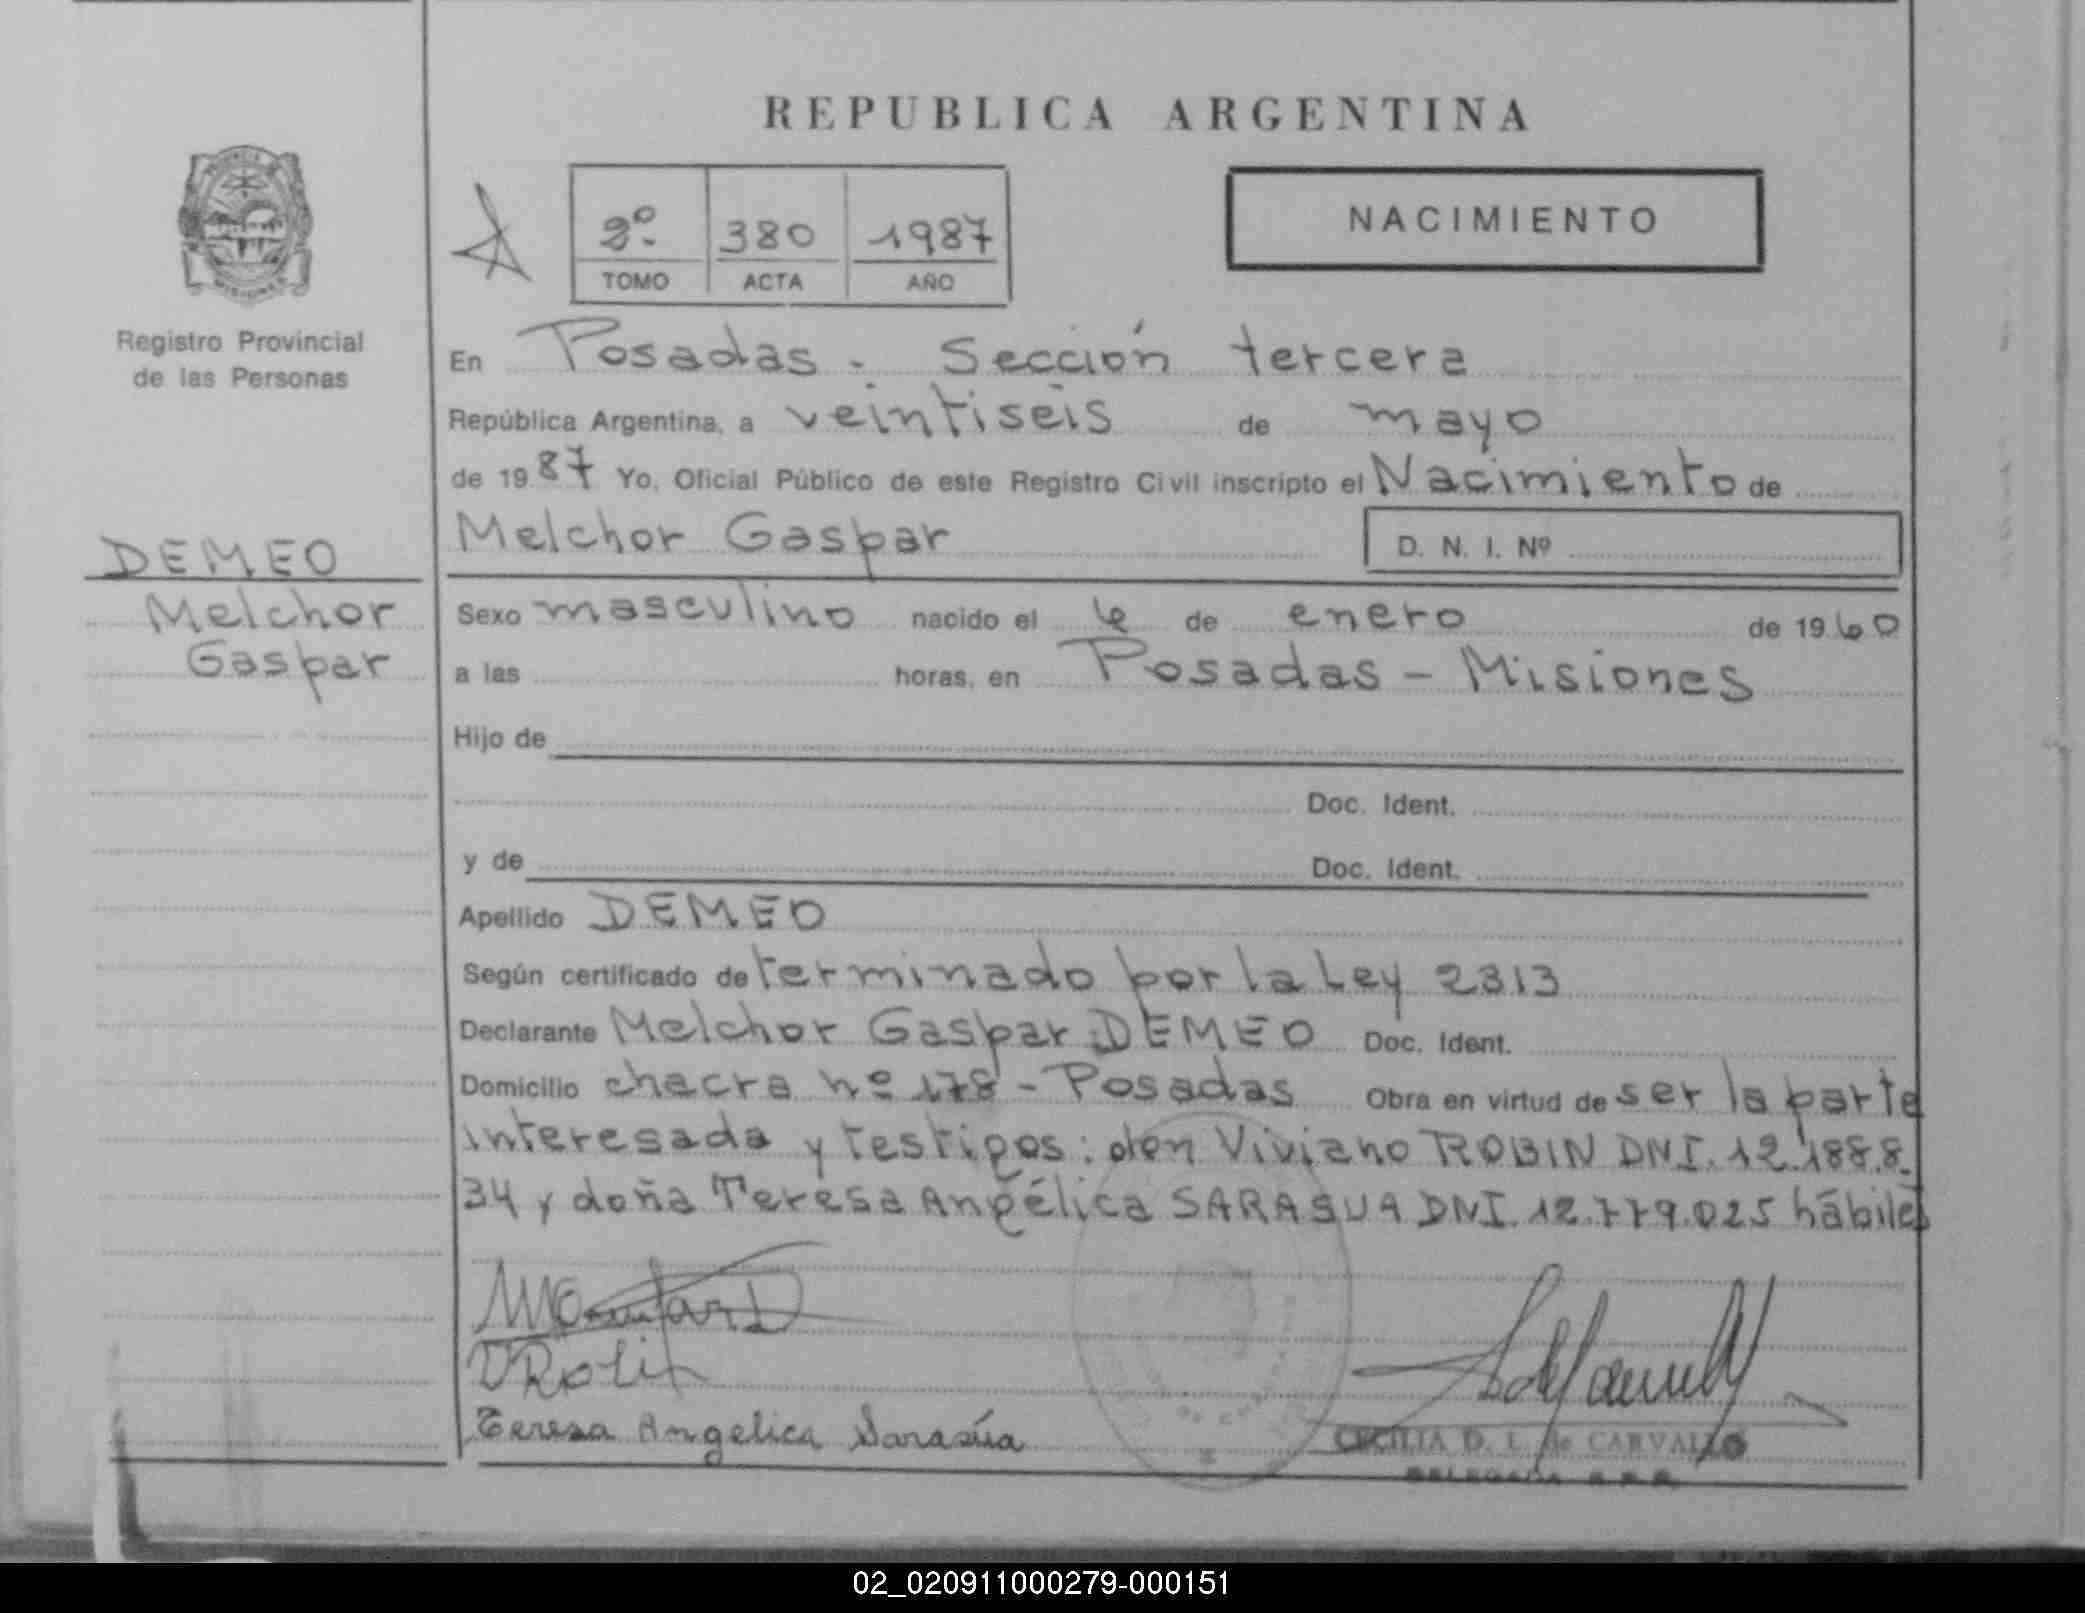 REPUBLICA ARGENTINA
2º 380 1987
TOMO ACTA AÑO
NACIMIENTO
MISIONES
Registro Provincial
de las Personas
DEMEO
Melchor
Gaspar
En Posadas - Sección tercera
República Argentina, a veintiseis de mayo
de 1987 Yo, Oficial Público de este Registro Civil inscripto el Nacimiento de
Melchor Gaspar D. N. I. Nº
Sexo masculino nacido el 6 de enero de 1960
a las horas, en Posadas - Misiones
Hijo de
Doc. Ident.
y de Doc. Ident.
Apellido DEMEO
Según certificado determinado por la Ley 2313
Declarante Melchor Gaspar DEMEO Doc. Ident.
Domicilio chacra nº 178 - Posadas Obra en virtud de ser la parte
interesada y testigos: don Viviano ROBIN DNI. 12.188.8.
34 y doña Teresa Angélica SARASUA DNI. 12.779.025 hábiles
Teresa Angelica Sarasúa
CECILIA D. L. de CARVALLO
DELEGADA R.P.P.
02_020911000279-000151